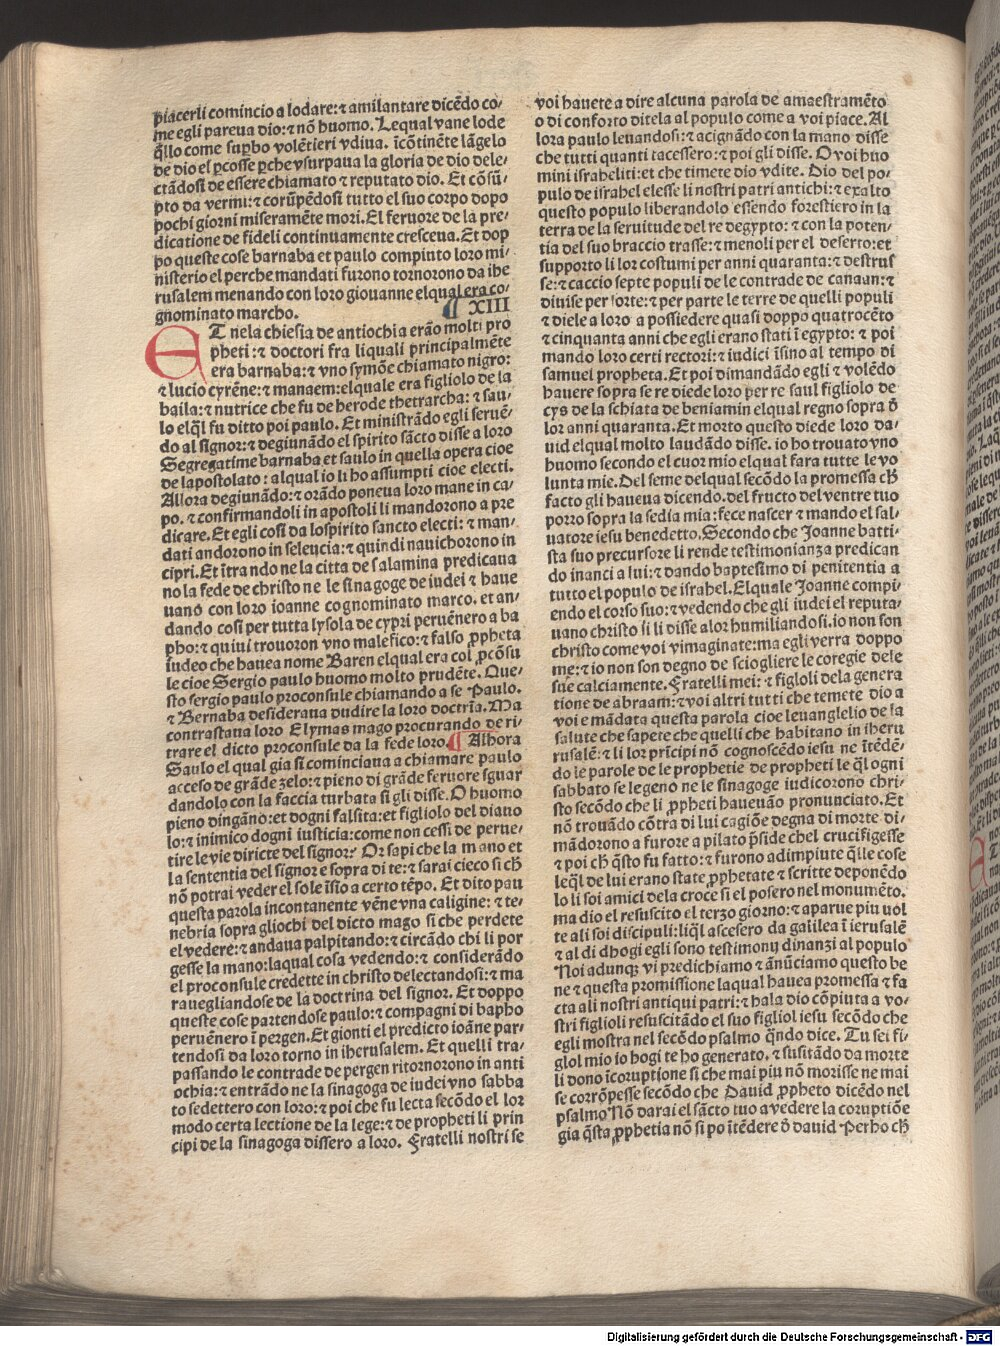 piacerli comincio a lodare: ⁊ amilantare dicēdo co-
me egli pareua dio: ⁊ nō huomo. Lequal vane lode
q̄llo come suꝑbo volētieri vdiua. īcōtinēte lāgelo
de dio el ꝑcosse ꝑche vsurpaua la gloria de dio dele-
ctādosi de essere chiamato ⁊ reputato dio. Et cōsū-
pto da vermi: ⁊ corūpēdosi tutto el suo corpo dopo
pochi giorni miseramēte mori. El feruore de la pre-
dicatione de fideli continuamente cresceua. Et dop
po queste cose barnaba et paulo compiuto loro mi-
nisterio el perche mandati furono tornorono da ihe
rusalem menando con loro giouanne elqual era co-
gnominato marcho. ¶ XIII
ET nela chiesia de antiochia erāo molti pro
pheti: ⁊ doctori fra liquali principalmēte
era barnaba: ⁊ vno symōe chiamato nigro:
⁊ lucio cyrēne: ⁊ manaem: elquale era figliolo de la
baila: ⁊ nutrice che fu de herode thetrarcha: ⁊ sau-
lo elq̄l fu ditto poi paulo. Et ministrādo egli seruē-
do al signor: ⁊ degiunādo el spirito sācto disse a loro
Segregatime barnaba et saulo in quella opera cioe
de lapostolato: alqual io li ho assumpti cioe electi.
Allora degiunādo: ⁊ orādo poneua loro mane in ca-
po. ⁊ confirmandoli in apostoli li mandorono a pre
dicare. Et egli cosi da lospirito sancto electi: ⁊ man-
dati andorono in seleucia: ⁊ quindi nauichorono in
cipri. Et ītrando ne la citta de salamina predicaua
no la fede de christo ne le sinagoge de iudei ⁊ haue
uano con loro ioanne cognominato marco. et an-
dando cosi per tutta lysola de cypri peruēnero a ba
pho: ⁊ quiui trouoron vno malefico: ⁊ falso ꝓpheta
iudeo che hauea nome Baren elqual era col ꝓcōsu
le cioe Sergio paulo huomo molto prudēte. Que-
sto sergio paulo proconsule chiamando a se Paulo.
⁊ Bernaba desideraua dudire la loro doctrīa. Ma
contrastaua loro Elymas mago procurando de ri-
trare el dicto proconsule da la fede loro. ¶ Alhora
Saulo el qual gia si cominciaua a chiamare paulo
acceso de grāde zelo: ⁊ pieno di grāde feruore sguar
dandolo con la faccia turbata si gli disse. O huomo
pieno dingāno: et dogni falsita: et figliolo del diauo
lo: ⁊ inimico dogni iusticia: come non cessi de perue-
tire le vie diricte del signor? Or sapi che la mano et
la sententia del signor e sopra di te: ⁊ sarai cieco si ch̄
nō potrai veder el sole īsio a certo tēpo. Et dito pau
questa parola incontanente vēne vna caligine: ⁊ te-
nebria sopra gliochi del dicto mago si che perdete
el vedere: ⁊ andaua palpitando: ⁊ circādo chi li por
gesse la mano: laqual cosa vedendo: ⁊ considerādo
el proconsule credette in christo delectandosi: ⁊ ma
rauegliandose de la doctrina del signor. Et doppo
queste cose partendose paulo: ⁊ compagni di bapho
peruēnero ī pergen. Et gionti el predicto ioāne par-
tendosi da loro torno in iherusalem. Et quelli tra-
passando le contrade de pergen ritornorono in anti
ochia: ⁊ entrādo ne la sinagoga de iudei vno sabba
to sedettero con loro: ⁊ poi che fu lecta secōdo el lor
modo certa lectione de la lege: ⁊ de propheti li prin
cipi de la sinagoga dissero a loro. Fratelli nostri se
voi hauete a dire alcuna parola de amaestramēto
o di conforto ditela al populo come a voi piace. Al
lora paulo leuandosi: ⁊ acignādo con la mano disse
che tutti quanti tacessero: ⁊ poi gli disse. O voi huo
mini israheliti: et che timete dio vdite. Dio del po-
pulo de israhel elesse li nostri patri antichi: ⁊ exalto
questo populo liberandolo essendo forestiero in la
terra de la seruitude del re degypto: ⁊ con la poten-
tia del suo braccio trasse: ⁊ menoli per el deserto: et
supporto li lor costumi per anni quaranta: ⁊ destrus
se: ⁊ caccio septe populi de le contrade de canaan: ⁊
diuise per sorte: ⁊ per parte le terre de quelli populi
⁊ diele a loro a possiedere quasi doppo quatrocēto
⁊ cinquanta anni che egli erano stati ī egypto: ⁊ poi
mando loro certi rectori: ⁊ iudici īsino al tempo di
samuel propheta. Et poi dimandādo egli ⁊ volēdo
hauere sopra se re diede loro per re saul figliolo de
cys de la schiata de beniamin elqual regno sopra d̄
lor anni quaranta. Et morto questo diede loro da-
uid elqual molto laudādo disse. io ho trouato vno
huomo secondo el cuor mio elqual fara tutte le vo
lunta mie. Del seme delqual secōdo la promessa ch̄
facto gli haueua dicendo. del fructo del ventre tuo
porro sopra la sedia mia: fece nascer ⁊ mando el sal-
uatore iesu benedetto. Secondo che Joanne batti-
sta suo precursore li rende testimonianza predican
do inanci a lui: ⁊ dando baptesimo di penitentia a
tutto el populo de israhel. Elquale Joanne compi-
endo el corso suo: ⁊ vedendo che gli iudei el reputa-
uano christo si li disse a lor humiliandosi. io non son
christo come voi vimaginate: ma egli verra doppo
me: ⁊ io non son degno de sciogliere le coregie dele
sue calciamente. Fratelli mei: ⁊ figloli dela genera
tione de abraam: ⁊ voi altri tutti che temete dio a
voi e mādata questa parola cioe leuanglelio de la
salute che sapete che quelli che habitano in iheru
rusalē: ⁊ li lor prīcipi nō cognoscēdo iesu ne ītēdē-
do le parole de le prophetie de propheti le q̄l ogni
sabbato se legeno ne le sinagoge iudicorono chri-
sto secōdo che li ꝓpheti haueuāo pronunciato. Et
nō trouādo cōtra di lui cagiōe degna di morte di-
mādorono a furore a pilato p̄side chel crucifigesse
⁊ poi ch̄ q̄sto fu fatto: ⁊ furono adimpiute q̄lle cose
leq̄l de lui erano state ꝓphetate ⁊ scritte deponēdo
lo li soi amici dela croce si el posero nel monumēto.
ma dio el resuscito el terzo giorno: ⁊ aparue piu uol
te ali soi discipuli: liq̄l ascesero da galilea ī ierusalē
⁊ al di dhogi egli sono testimonij dinanzi al populo
Noi adunqꝫ vi predichiamo ⁊ ānūciamo questo be
ne ⁊ questa promissione laqual hauea promessa ⁊ fa
cta ali nostri antiqui patri: ⁊ hala dio cōpiuta a vo-
stri figlioli resuscitādo el suo figliol iesu secōdo che
egli mostra nel secōdo psalmo q̄ndo dice. Tu sei fi-
gliol mio io hogi te ho generato. ⁊ susitādo da morte
li dono īcoruptione si che mai piu nō morisse ne mai
se corrōpesse secōdo che Dauid ꝓpheto dicēdo nel
psalmo Nō darai el sācto tuo a vedere la coruptiōe
gia q̄sta ꝓphetia nō si po ītēdere d̄ dauid Perho ch̄
Digitalisierung gefördert durch die Deutsche Forschungsgemeinschaft - DFG